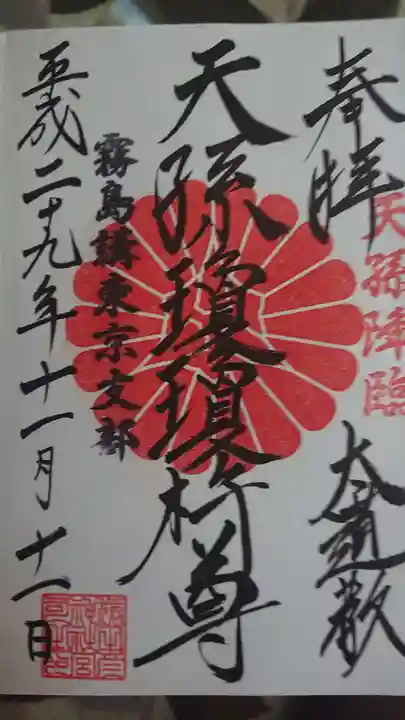 奉拝
天孫降臨
大道歓
天孫瓊瓊杵尊
霧島講東京支部
平成二十九年十一月十一日